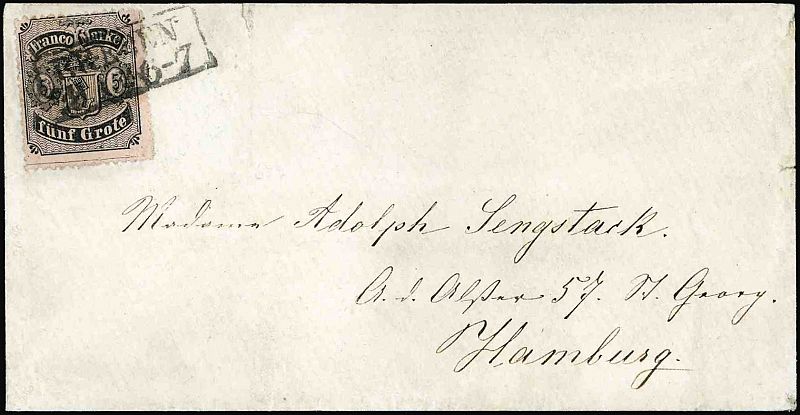 Franco Marke
BREMEN
5 5
6-7
fünf Grote
Madame Adolph Sengstack.
A. d. Alster 57. St. Georg.
Hamburg.